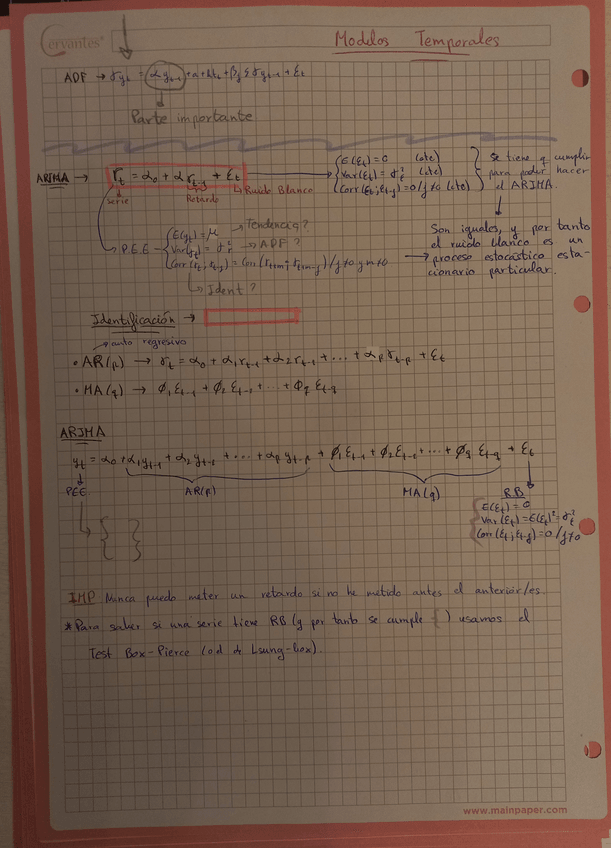 Cervantes
Modelos Temporales
ADF → γy_t = αy_{t-1} + a + bt_t + β_j Σ γy_{t-1} + ε_t
Parte importante
ARIMA → r_t = α_0 + α r_{t-1} + ε_t
Serie
Retardo
Ruido Blanco
E(ε_t) = 0 (cte)
Var(ε_t) = σ²_ε (cte)
Corr(ε_t; ε_{t-j}) = 0 / j≠0 (cte)
se tiene q cumplir
para poder hacer
el ARIMA.
P.E.E - E(y_t) = μ Tendencia?
Var(y_t) = σ² → ADF?
Corr(r_t, r_{t-j}) = Corr(r_{t+m}; r_{t+m-j}) / j≠0 y m≠0
Ident?
Son iguales, y por tanto
el ruido blanco es un
proceso estocástico esta-
cionario particular.
Identificación →
auto regresivo
• AR(p) → r_t = α_0 + α_1 r_{t-1} + α_2 r_{t-1} + ... + α_p r_{t-p} + ε_t
• MA(q) → φ_1 ε_{t-1} + φ_2 ε_{t-2} + ... + φ_q ε_{t-q}
ARIMA
y_t = α_0 + α_1 y_{t-1} + α_2 y_{t-2} + ... + α_p y_{t-p} + φ_1 ε_{t-1} + φ_2 ε_{t-2} + ... + φ_q ε_{t-q} + ε_t
PEE AR(p) MA(q) RB
E(ε_t) = 0
Var(ε_t) = E(ε_t)² = σ²_ε
Corr(ε_t; ε_{t-j}) = 0 / j≠0
IMP Nunca puedo meter un retardo si no he metido antes el anterior/es.
*Para saber si una serie tiene RB (y por tanto se cumple { ) usamos el
Test Box-Pierce (o d de Lsung-box).
www.mainpaper.com